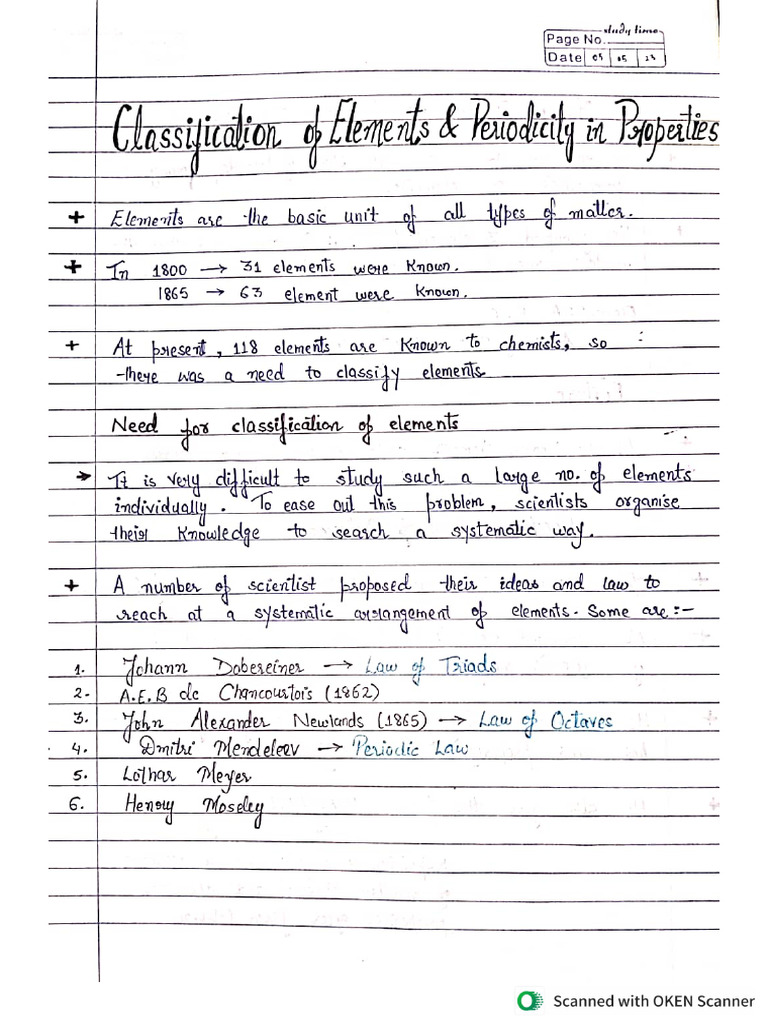 study time
Page No.
Date 05 05 23
Classification of Elements & Periodicity in Properties
+ Elements are the basic unit of all types of matter.
+ In 1800 → 31 elements were known.
1865 → 63 element were known.
+ At present, 118 elements are known to chemists, so
there was a need to classify elements
Need for classification of elements
→ It is very difficult to study such a large no. of elements
individually. To ease out this problem, scientists organise
their knowledge to search a systematic way.
+ A number of scientist proposed their ideas and law to
reach at a systematic arrangement of elements. Some are:-
1. Johann Dobereiner → Law of Triads
2. A.E.B de Chancourtois (1862)
3. John Alexander Newlands (1865) → Law of Octaves
4. Dmitri Mendeleev → Periodic Law
5. Lothar Meyer
6. Henry Moseley
Scanned with OKEN Scanner